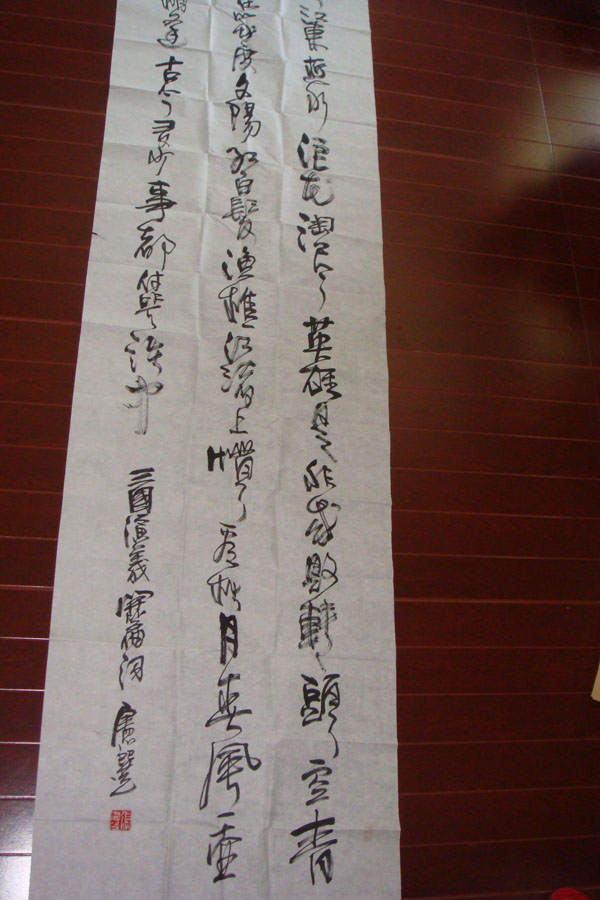 江東逝水浪花淘尽英雄是非成敗轉頭空青
幾度夕陽紅白髮漁樵江渚上慣看秋月春風一壶
相逢古今多少事都付笑談中
三國演義開篇词